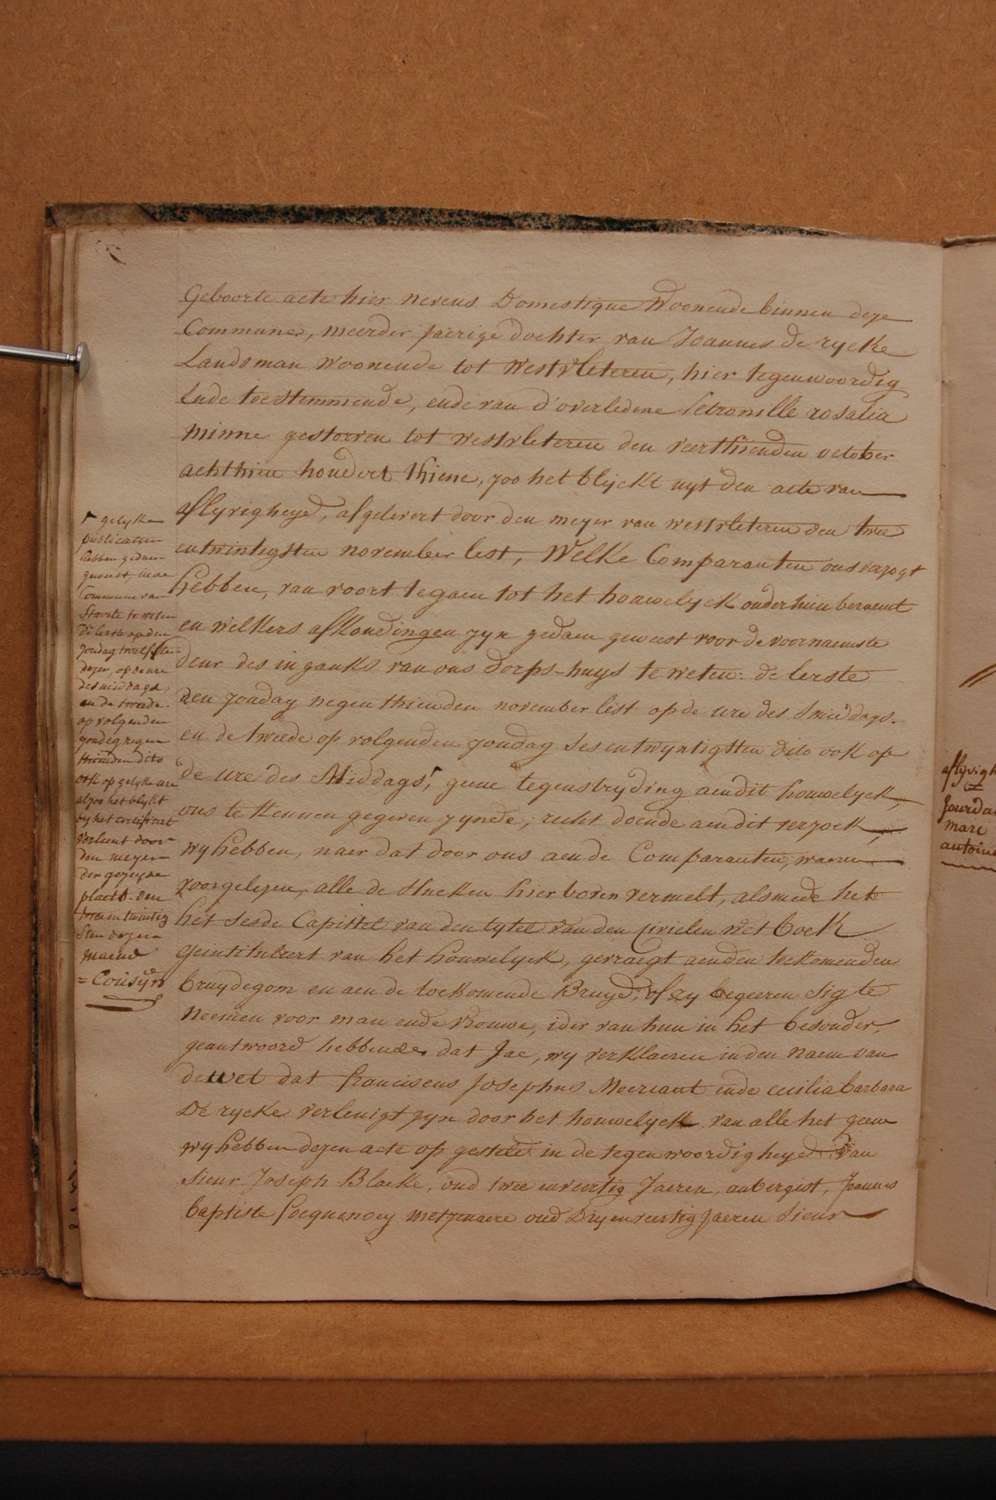 Geboorte acte hier nevens Domestique Woonende binnen deze
Commune, meerder jaerige dochter van Joannes de rycke
Landsman Woonende tot Westvleteren, hier tegenwoordig
Ende toestemmende, ende van d'overledene Petronille rosalia
Minne gestorven tot westvleteren den veerthienden october
achthien hondert thiene, zoo het blyckt uyt den acte van
aflyvigheyd, afgelevert door den meyer van westvleteren den twee
entwintigsten november lest, Welke Comparanten ons verzogt
hebben, van voort te gaen tot het houwelyck onder hun beraemt
en welkers afkondingen zyn gedaen geweest voor de voornaemste
deur des inganks van ons dorps-huys te weten: de Eerste
den zondag negenthienden november lest op de ure des smiddags
en de tweede op volgenden zondag sesentwyntigsten dito ook op
de ure des Middags, geene tegenstryding aen dit houwelyck
ons te kennen gegeven zynde, recht doende aen dit verzoek,
wy hebben, naer dat door ons aen de Comparanten, waeren
voorgelezen, alle de stucken hier boven vermelt, alsmede het
het sesde Capittel van den tytel van den Civielen Wet boek
geintituleert van het houwelyck, gevraegt aen den toekomenden
bruydegom en aen de toekomende Bruyd, of zy begeeren sig te
Neemen voor man ende Vrouwe, ider van hun in het besonder
geantwoord hebbende dat Jae, wy verklaeren in den Naem van
de wet dat franciscus Josephus Meeriaut ende cecilia barbara
De rycke vereenigt zyn door het houwelyck van alle het geene
wy hebben dezen acte op gestelt in de tegenwoordigheyd van
Sieur Joseph Blaeke, oud twee enveertig Jaeren, aubergist, Joannes
baptiste Metzenaere oud Dryenveertig Jaeren Sieur
gelyke
publicatien
hebben gedaen
geweest inde
Commune van
Stavele te weten
d'Eerste op den
zondag twelfsten
dezer, op de ure
des middags
en de tweede
op volgenden
zondag negen
thienden dito
ook op gelyke ure
alzoo het blykt
by het certificat
verleent door
den meyer
der gezeyde
plaets den
sten dezer
maend
= Cousyn
aflyvigh
Jourda
marc
antoine